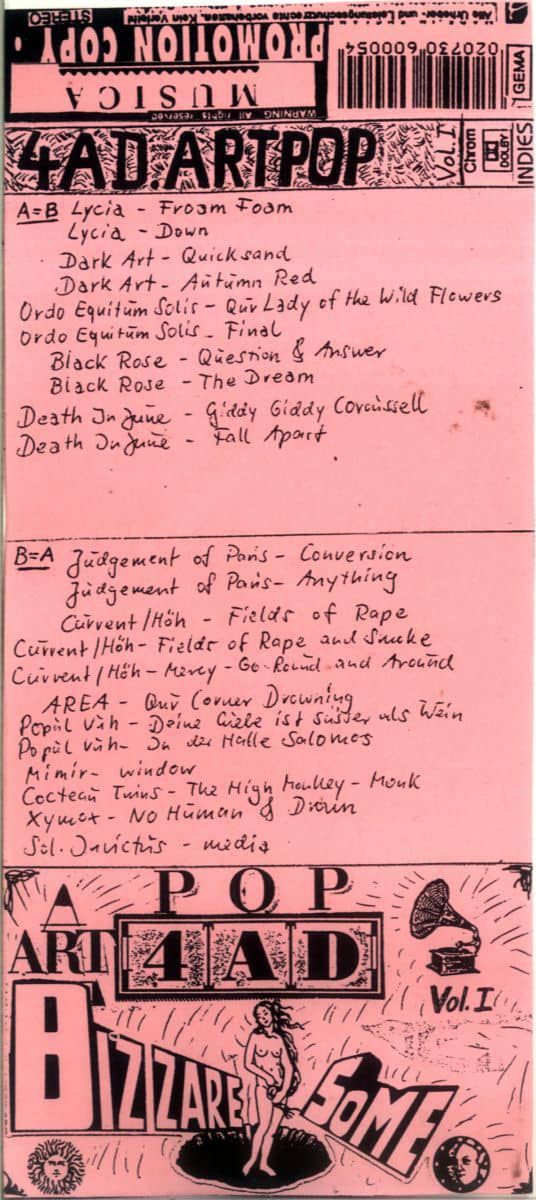 Alle Urheber- und Leistungsschutzrechte vorbehalten. Kein Verleih
STEREO
PROMOTION COPY.
MUSICA
WARNING All rights reserved
020730 600054
GEMA
4AD.ARTPOP
Vol. I
Chrom
DOLBY
INDIES
A=B Lycia - Froam Foam
Lycia - Down
Dark Art - Quicksand
Dark Art - Autumn Red
Ordo Equitum Solis - Our Lady of the Wild Flowers
Ordo Equitum Solis - Final
Black Rose - Question & Answer
Black Rose - The Dream
Death In June - Giddy Giddy Coroussell
Death In June - Fall Apart
B=A Judgement of Paris - Conversion
Judgement of Paris - Anything
Current/Höh - Fields of Rape
Current/Höh - Fields of Rape and Smoke
Current/Höh - Mercy - Go-Round and Around
AREA - Our Corner Drowning
Popul Vuh - Deine Liebe ist süsser als Wein
Popul Vuh - In der Halle Salomos
Mimir - window
Cocteau Twins - The High Monkey - Monk
Xymox - No Human & Drown
Sol. Invictus - media
A POP
ART 4AD
Vol. I
BIZZARE SOME